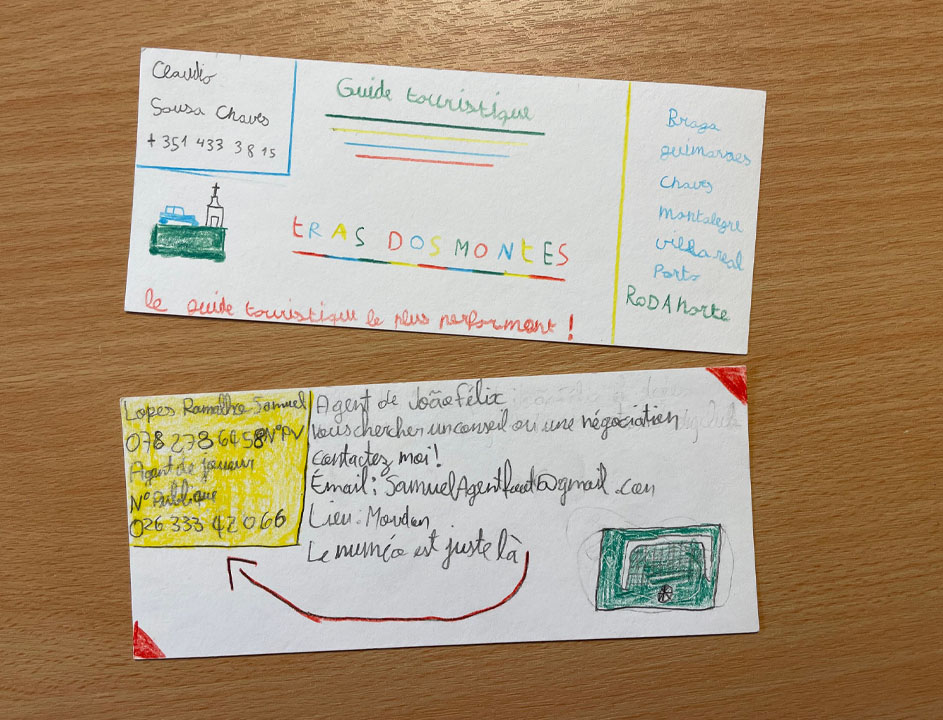 Claudio
Sousa Chaves
+ 351 433 3815
Guide touristique
tRAS DOSMONtES
le guide touristique le plus performant !
Braga
guimaraes
Chaves
montalegre
villa real
Porto
RoDA norte
Lopes Ramalho Samuel
078 278 64 58 N°PV
Agent de joueur
N° Publique
026 333 42 066
Agent de João Félix
Vous chercher un conseil ou une négociation
contactez moi!
Émail: SamuelAgentfoot@gmail.com
Lieu: Moudon
Le numéro est juste là